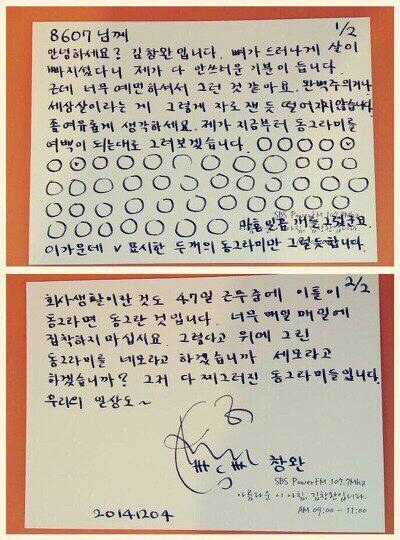 8607님께
1/2
안녕하세요? 김창완입니다. 뼈가 드러나게 살이
빠지셨다니 제가 다 안쓰러운 기분이 듭니다.
근데 너무 예민하셔서 그런 것 같아요. 완벽주의거나
세상살이라는 게 그렇게 자로 잰 듯 떨어지지않습니다
좀 여유롭게 생각하세요. 제가 지금부터 동그라미를
여백이 되는대로 그려보겠습니다.
마흔일곱 개를 그렸군요.
SBS PowerFM 107.7Mhz
이 가운데 v 표시한 두 개의 동그라미만 그럴듯합니다.
2/2
회사생활이란 것도 47일 근무 중에 이틀이
동그라면 동그란 것입니다. 너무 매일 매일에
집착하지 마십시요. 그렇다고 위에 그린
동그라미를 네모라고 하겠습니까 세모라고
하겠습니까? 그저 다 찌그러진 동그라미들입니다.
우리의 일상도~
창완
SBS PowerFM 107.7Mhz
아름다운 이 아침, 김창완입니다.
AM 09:00 - 11:00
20141204